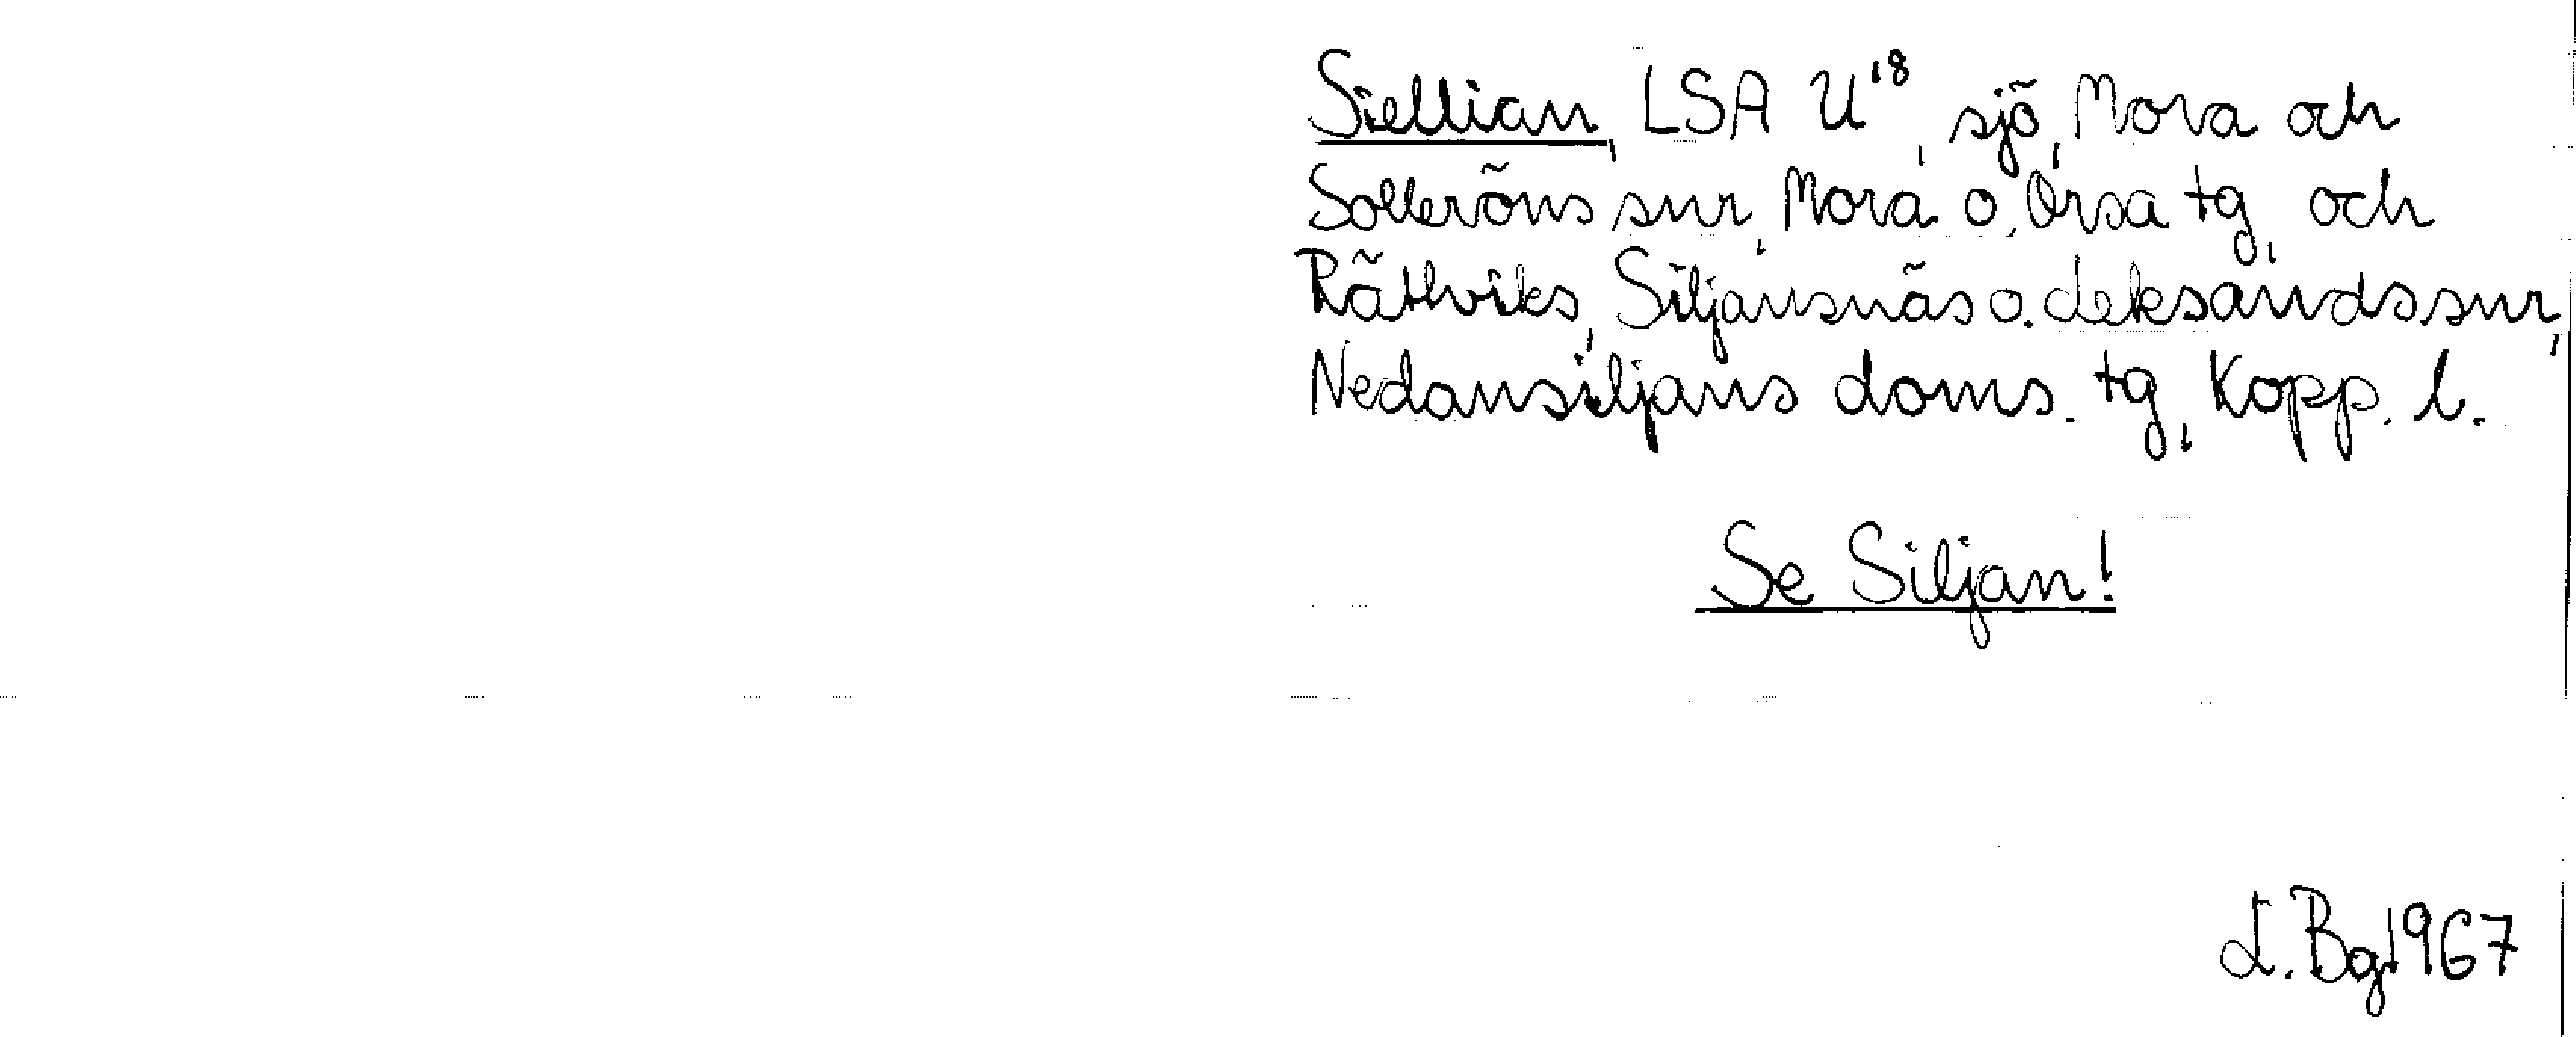 Siellian, LSA U¹⁸, sjö, Mora och
Solleröns snr, Mora o. Orsa tg, och
Räthviks, Siljansnäs o. Leksands snr,
Nedansiljans doms. tg, Kopp. l.
Se Siljan!
L. Bg 1967